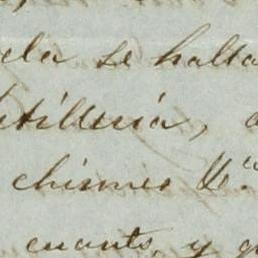 la se halla
tilleria,
chismes &a.
cuanto, y